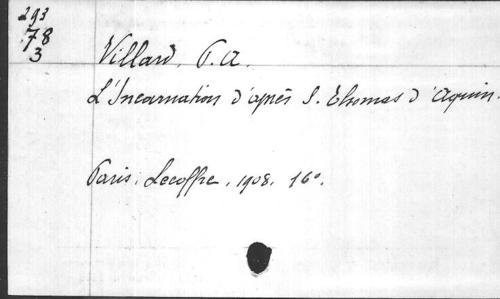 293
78
3
Villard, P. A.
L'Incarnation d'après S. Thomas d'Aquin.
Paris, Lecoffre, 1908. 16°.